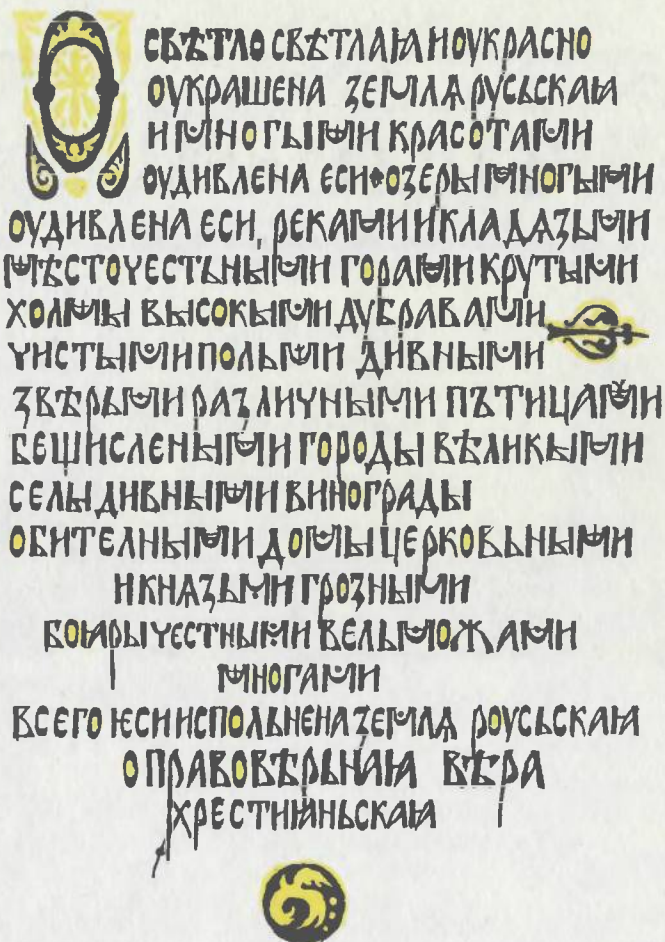 О СВѢТЛО СВѢТЛАꙖ И ОУКРАСНО
ОУКРАШЕНА ЗЕМЛѦ РУСЬСКАꙖ
И МНОГЫМИ КРАСОТАМИ
ОУДИВЛЕНА ЕСИ•ОЗЕРЫ МНОГЫМИ
ОУДИВЛЕНА ЕСИ, РЕКАМИ И КЛАДѦЗЫМИ
МѢСТОЧЕСТЬНЫМИ ГОРАМИ КРУТЫМИ
ХОЛМЫ ВЫСОКЫМИ ДУБРАВАМИ
ЧИСТЫМИ ПОЛЬМИ ДИВНЫМИ
ЗВѢРЬМИ РАЗЛИЧНЫМИ ПЪТИЦАМИ
БЕЩИСЛЕНЫМИ ГОРОДЫ ВѢЛИКЫМИ
СЕЛЫ ДИВНЫМИ ВИНОГРАДЫ
ОБИТЕЛНЫМИ ДОМЫ ЦЕРКОВЬНЫМИ
И КНѦЗЬМИ ГРОЗНЫМИ
БОꙖРЫ ЧЕСТНЫМИ ВЕЛЬМОЖАМИ
МНОГАМИ
ВСЕГО ѤСИ ИСПОЛЬНЕНА ЗЕМЛѦ РОУСЬСКАꙖ
О ПРАВОВѢРЬНАꙖ ВѢРА
ХРЕСТИꙖНЬСКАꙖ